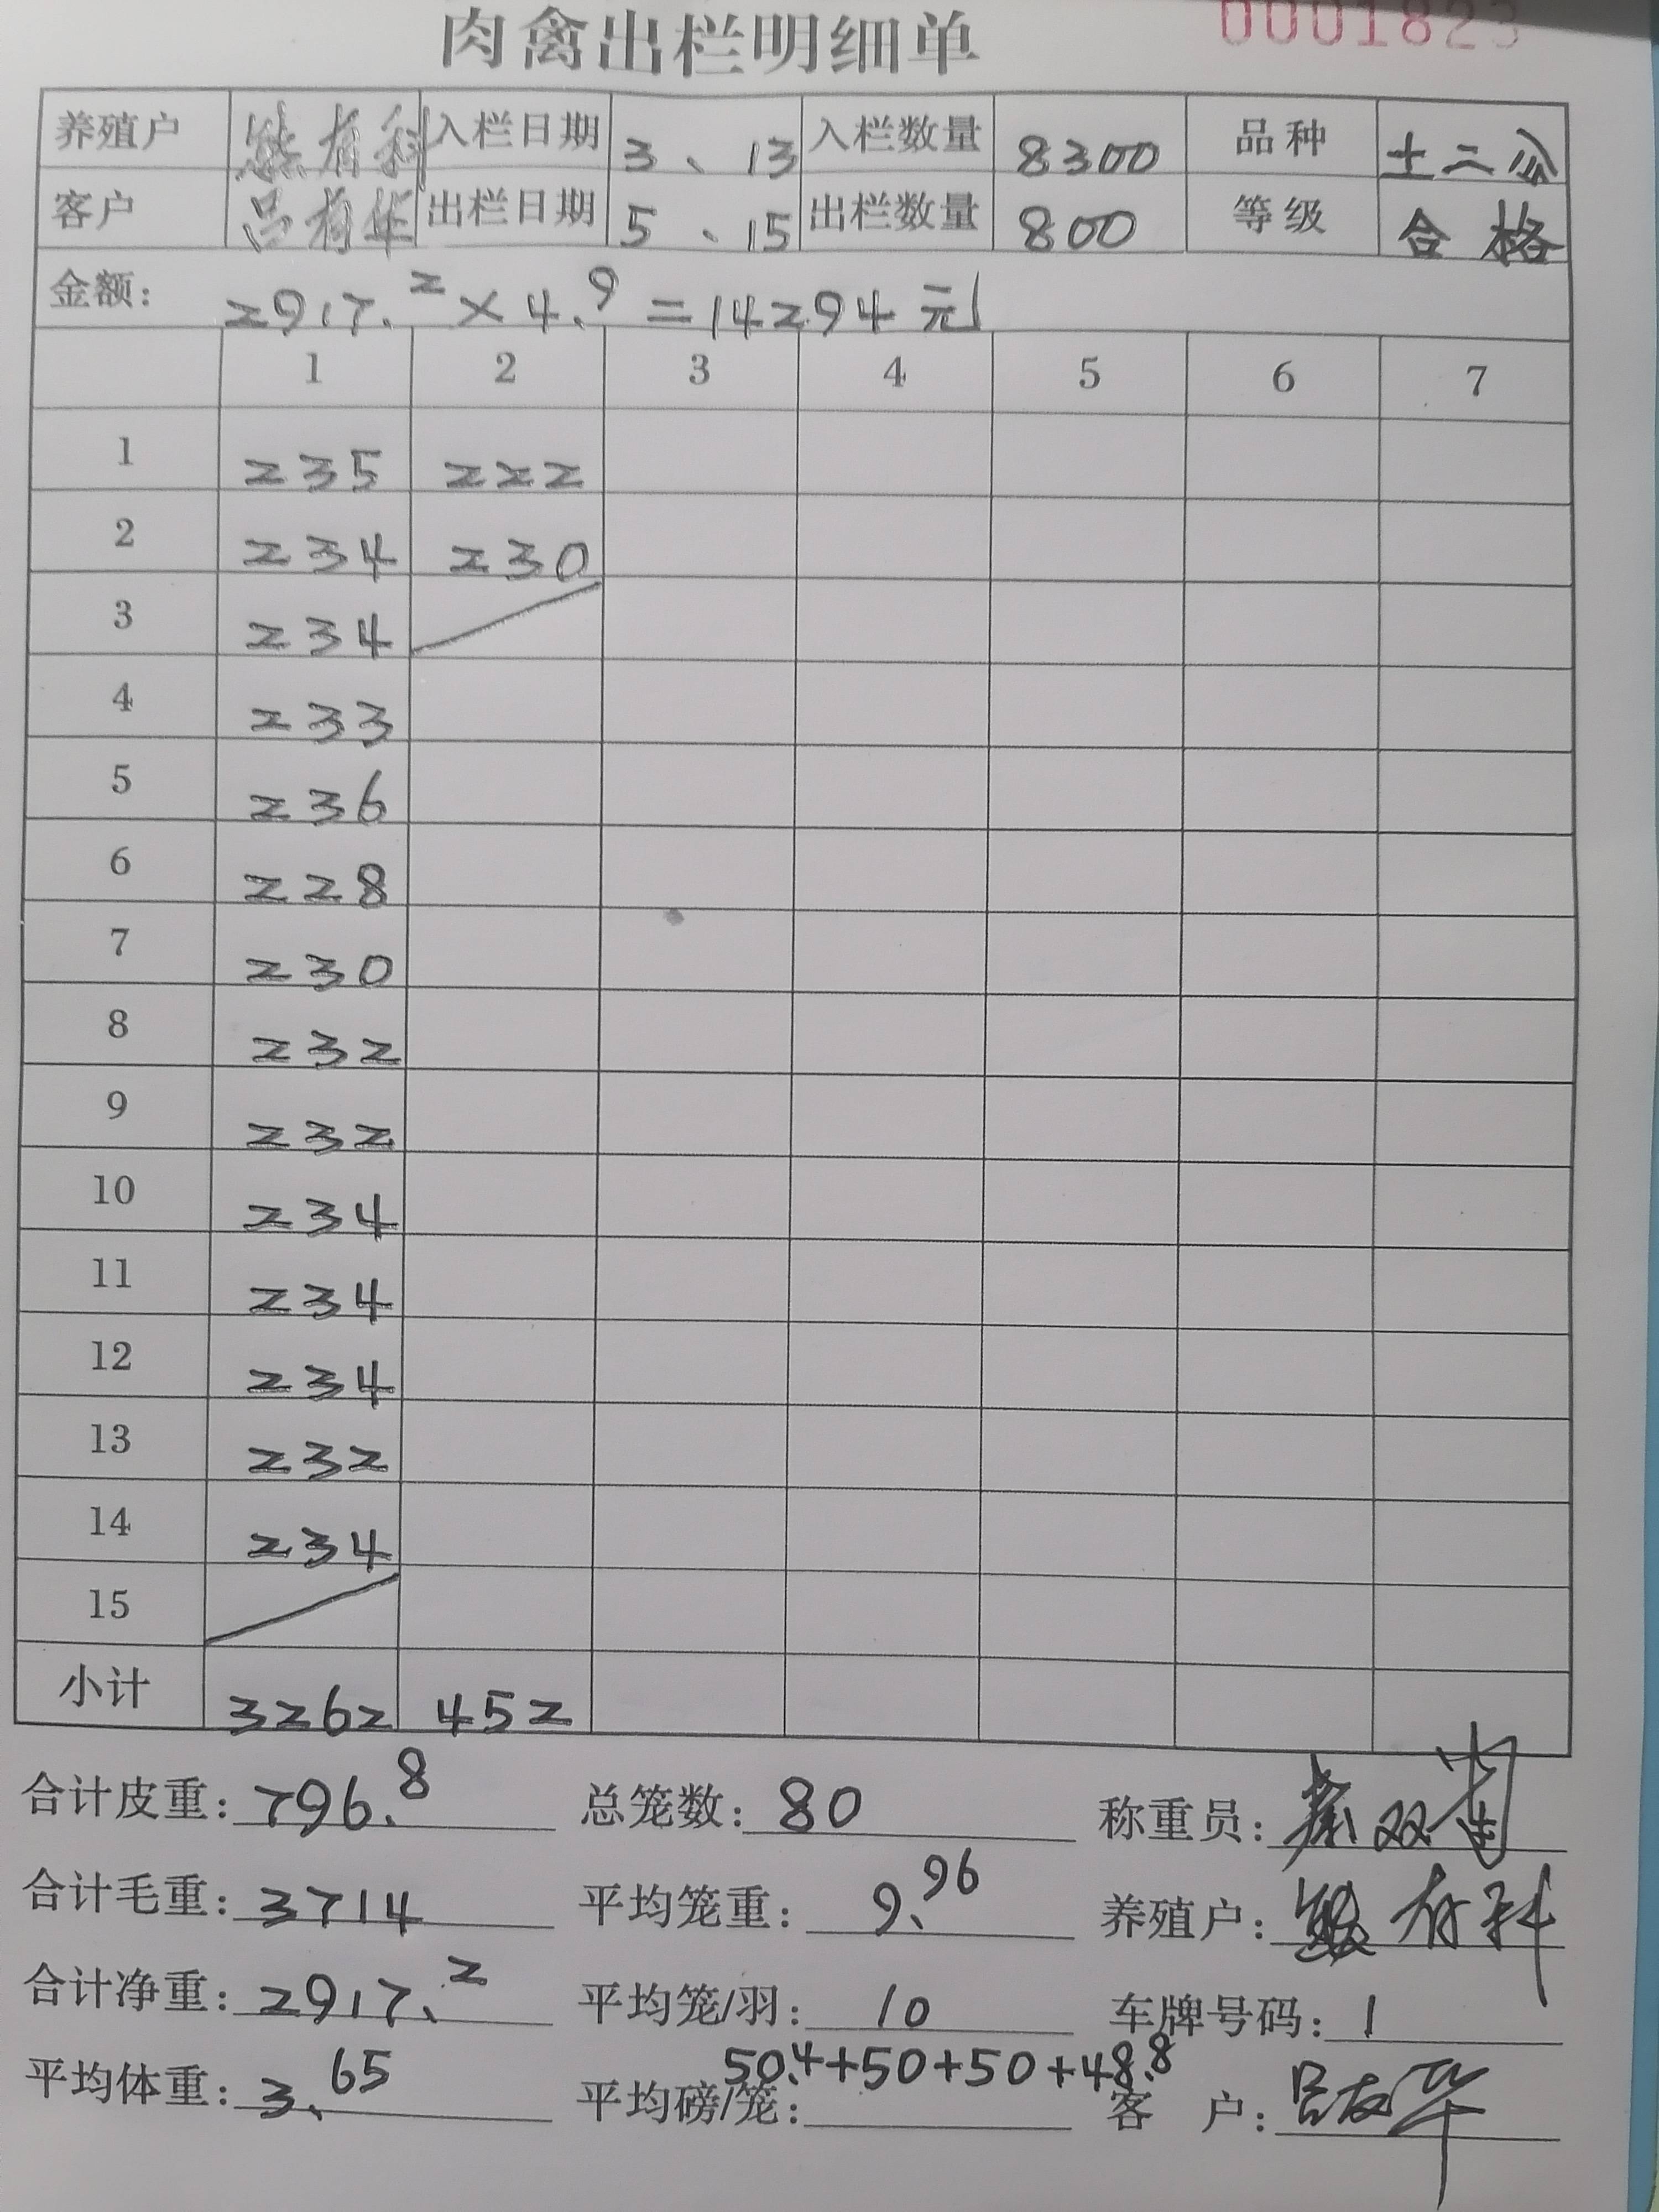 肉禽出栏明细单 0001823
养殖户 熊有科 入栏日期 3、13 入栏数量 8300 品种 土二公
客户 吕有华 出栏日期 5、15 出栏数量 800 等级 合格
金额: 2917.2×4.9=14294元
1 2 3 4 5 6 7
1 235 222
2 234 230
3 234
4 233
5 236
6 228
7 230
8 232
9 232
10 234
11 234
12 234
13 232
14 234
15
小计 3262 452
合计皮重: 796.8 总笼数: 80 称重员:
合计毛重: 3714 平均笼重: 9.96 养殖户: 熊有科
合计净重: 2917.2 平均笼/羽: 10 车牌号码: 1
平均体重: 3.65 平均磅/笼: 50.4+50+50+48.8 客户: 吕友华